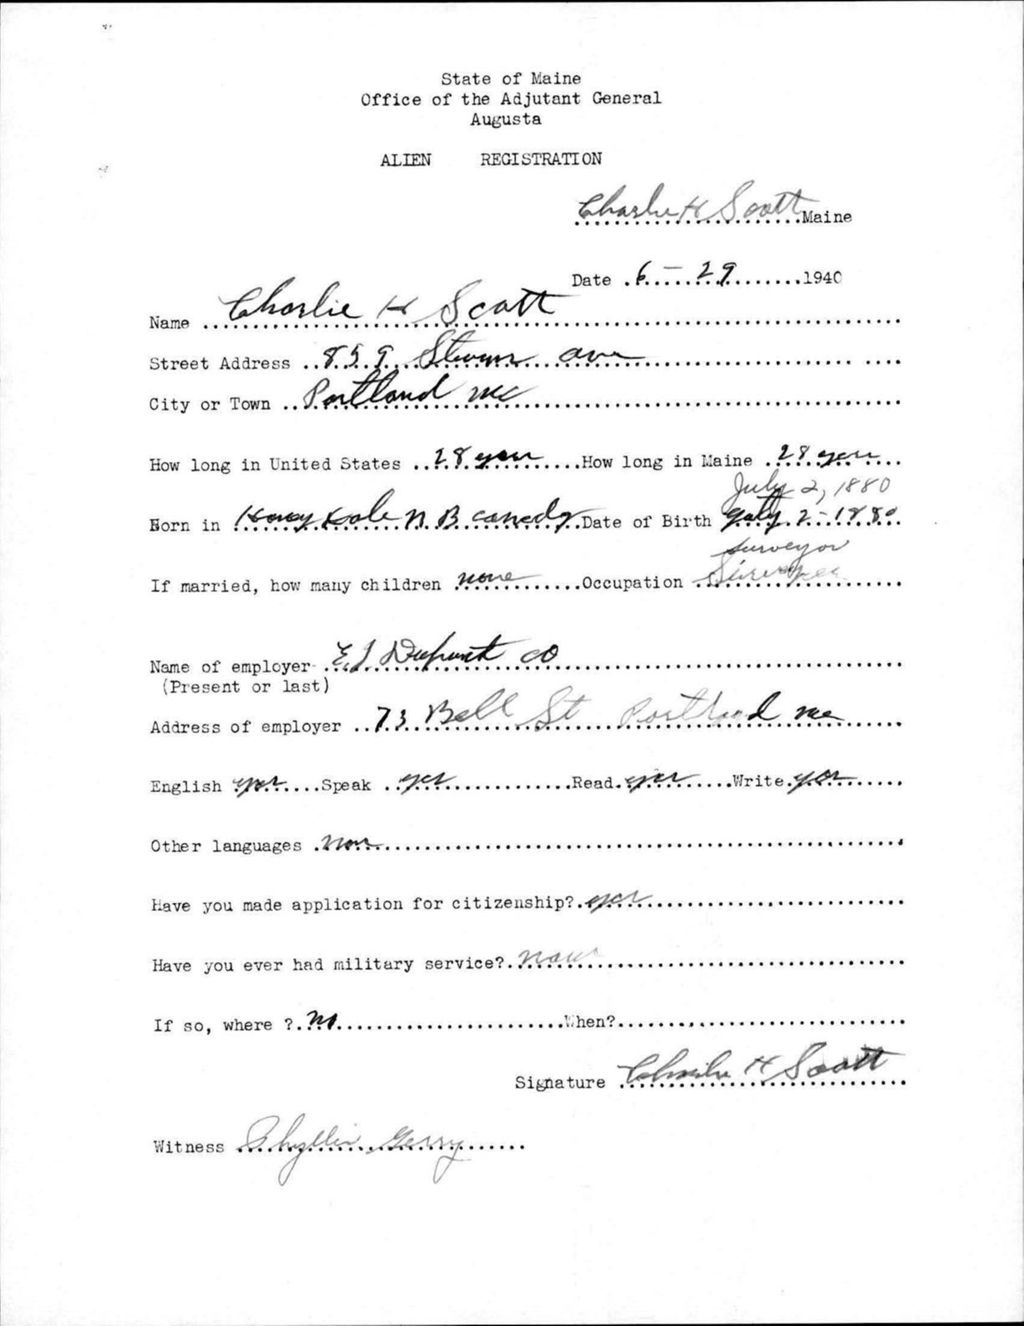 State of Maine
Office of the Adjutant General
Augusta
ALIEN REGISTRATION
Charlie H Scott Maine
Date 6-29 1940
Name Charlie H Scott
Street Address 859 Stevens ave
City or Town Portland Me
How long in United States 28 year How long in Maine 28 year
July 2, 1880
Born in N B Date of Birth July 2-1880
surveyor
If married, how many children none Occupation
Name of employer E I Dupont Co
(Present or last)
Address of employer 73 Bell St Portland me
English yes Speak yes Read yes Write yes
Other languages non
Have you made application for citizenship? yes
Have you ever had military service?
If so, where ? no When?
Signature Charlie H Scott
Witness Phyllis Gerry